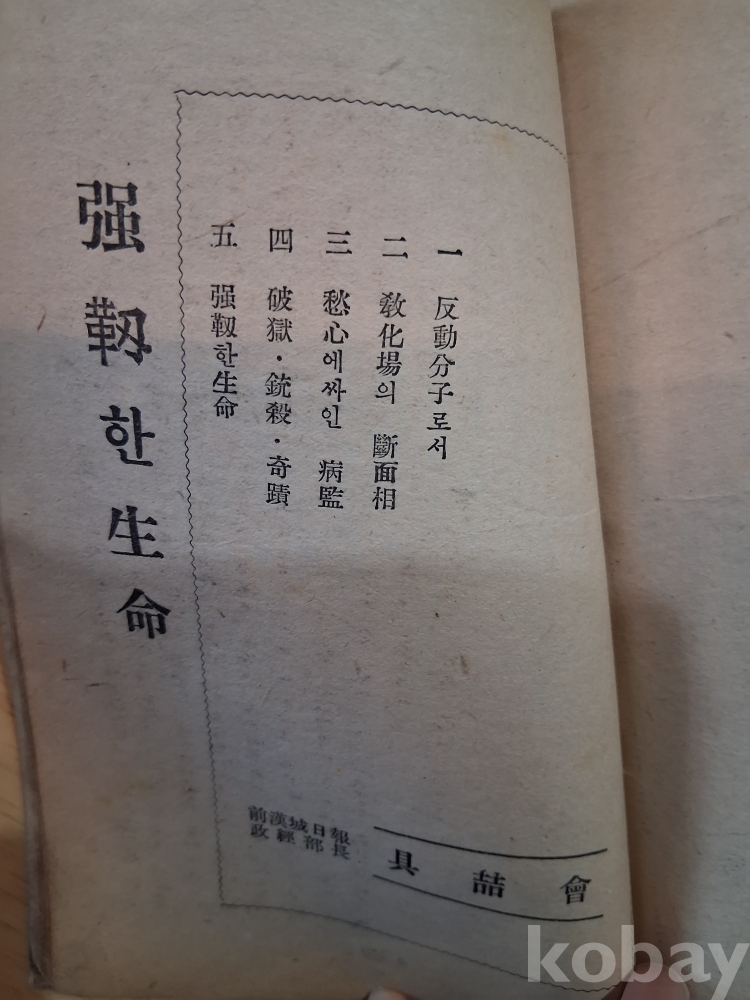 强靱한生命
一 反動分子로서
二 敎化場의 斷面相
三 愁心에싸인 病監
四 破獄·銃殺·奇蹟
五 强靱한生命
前漢城日報
政經部長
具喆會
kobay